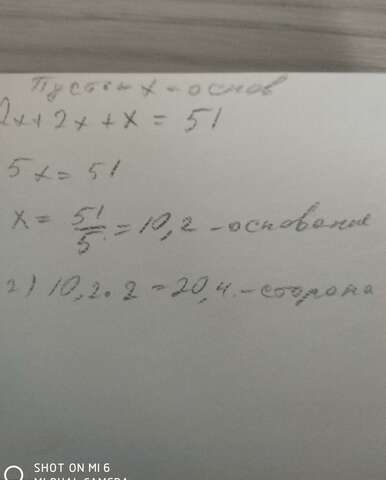 Пусть x - основ
2x+2x+x = 51
5x = 51
x = 51/5 = 10,2 - основание
2) 10,2·2 = 20,4 - сторона
SHOT ON MI 6
MI DUAL CAMERA